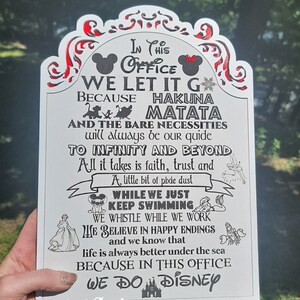 IN THIS
OFFICE
WE LET IT GO
BECAUSE HAKUNA
MATATA
AND THE BARE NECESSITIES
will always be our guide
TO INFINITY AND BEYOND
All it takes is faith, trust and
A little bit of pixie dust
WHILE WE JUST
KEEP SWIMMING
WE WHISTLE WHILE WE WORK
WE BELIEVE IN HAPPY ENDINGS
and we know that
life is always better under the sea
BECAUSE IN THIS OFFICE
WE DO DISNEY